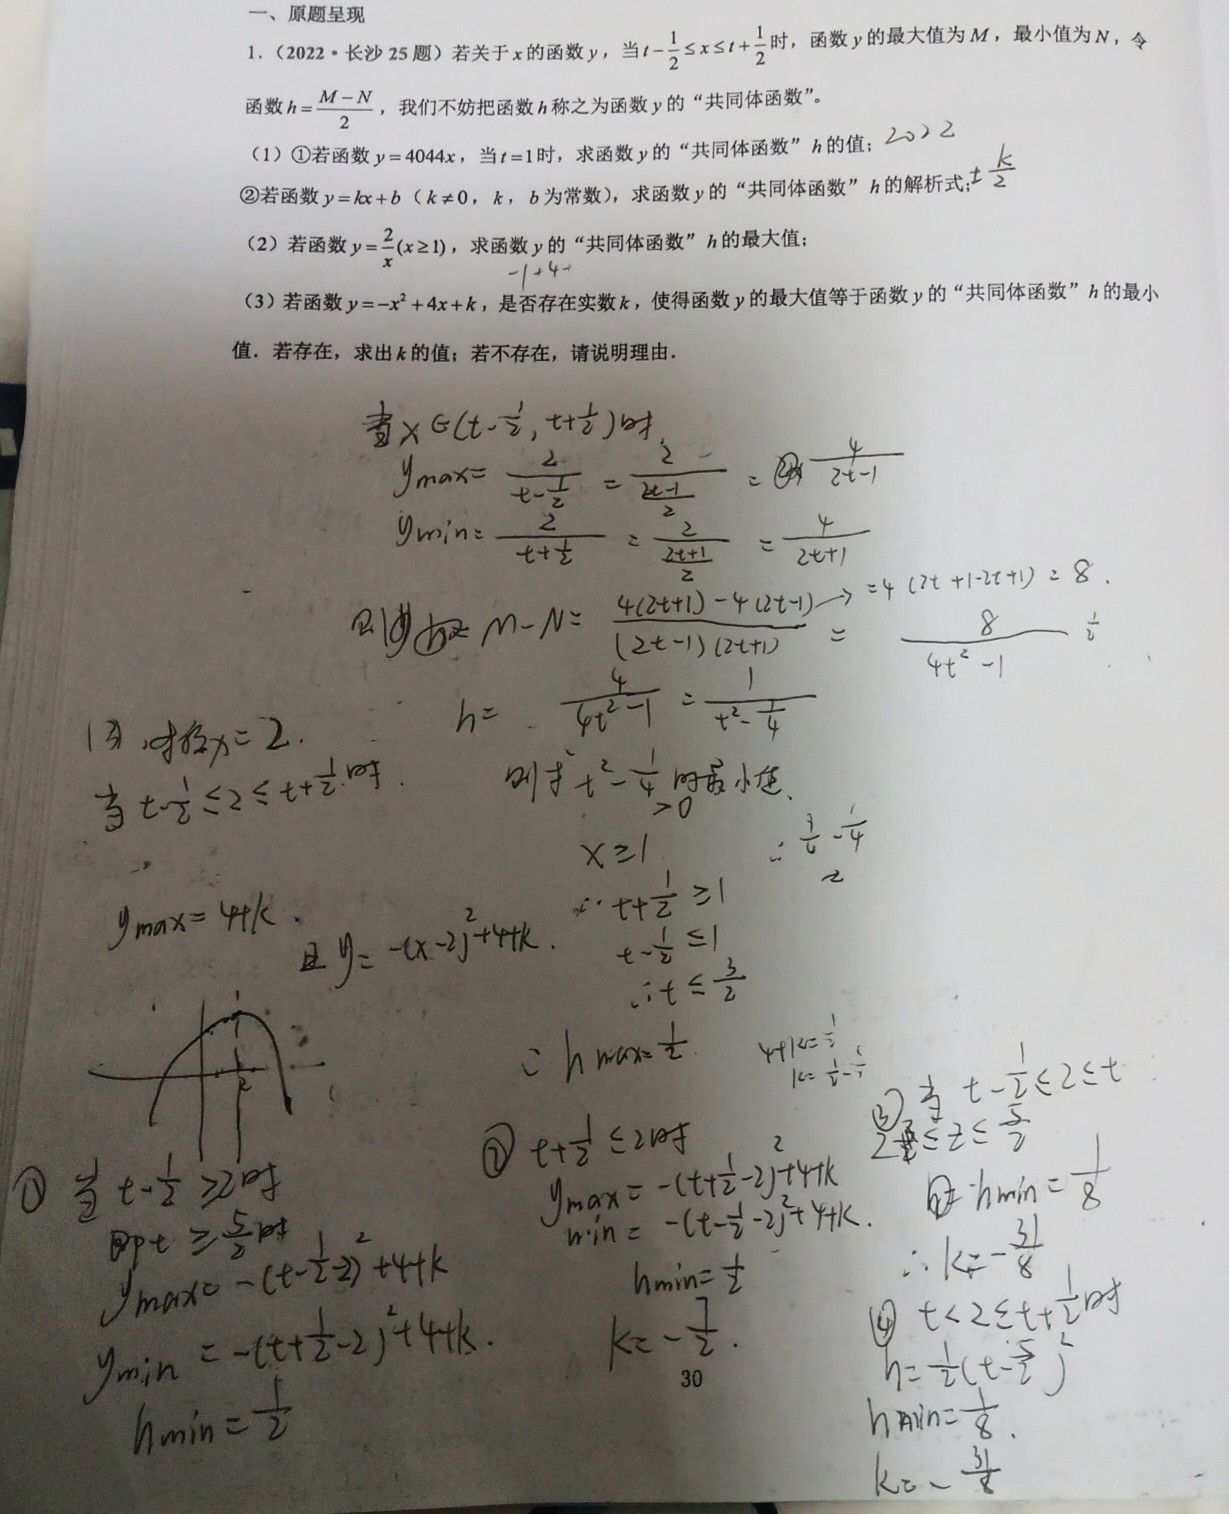 一、原题呈现
1.（2022·长沙 25 题）若关于 x 的函数 y，当 t-1/2≤x≤t+1/2 时，函数 y 的最大值为 M，最小值为 N，令
函数 h=(M-N)/2，我们不妨把函数 h 称之为函数 y 的“共同体函数”。
（1）①若函数 y=4044x，当 t=1 时，求函数 y 的“共同体函数”h 的值；2022
②若函数 y=kx+b（k≠0，k，b 为常数），求函数 y 的“共同体函数”h 的解析式；±k/2
（2）若函数 y=2/x(x≥1)，求函数 y 的“共同体函数”h 的最大值；
-1+4
（3）若函数 y=-x²+4x+k，是否存在实数 k，使得函数 y 的最大值等于函数 y 的“共同体函数”h 的最小
值．若存在，求出 k 的值；若不存在，请说明理由．
当 x∈(t-1/2, t+1/2)时,
ymax= 2/(t-1/2) = 2/((2t-1)/2) = 4/(2t-1)
ymin= 2/(t+1/2) = 2/((2t+1)/2) = 4/(2t+1)
则 M-N= (4(2t+1)-4(2t-1))/((2t-1)(2t+1)) → =4(2t+1-2t+1)=8.
= 8/(4t²-1)
h= 4/(4t²-1) = 1/(t²-1/4)
则求 t²-1/4 的最小值、
>0
x≥1
∵ t+1/2≥1
t-1/2≤1
∴t≤3/2
∴ hmax=1/2
对称x=2.
当 t-1/2≤2≤t+1/2时.
ymax=4+k.
且 y=-(x-2)²+4+k.
4+k=1/2
① 当 t-1/2≥2时
即t≥5/2时
ymax=-(t-1/2-2)²+4+k
ymin=-(t+1/2-2)²+4+k.
hmin=1/2
② t+1/2≤2时
ymax=-(t+1/2-2)²+4+k
min=-(t-1/2-2)²+4+k.
hmin=1/2
k=-7/2.
③ 当 t-1/2≤2≤t
hmin=1/8
∴k=-31/8
④ t<2≤t+1/2时
h=1/2(t-5/2)²
hmin=1/8.
k=-31/8
30